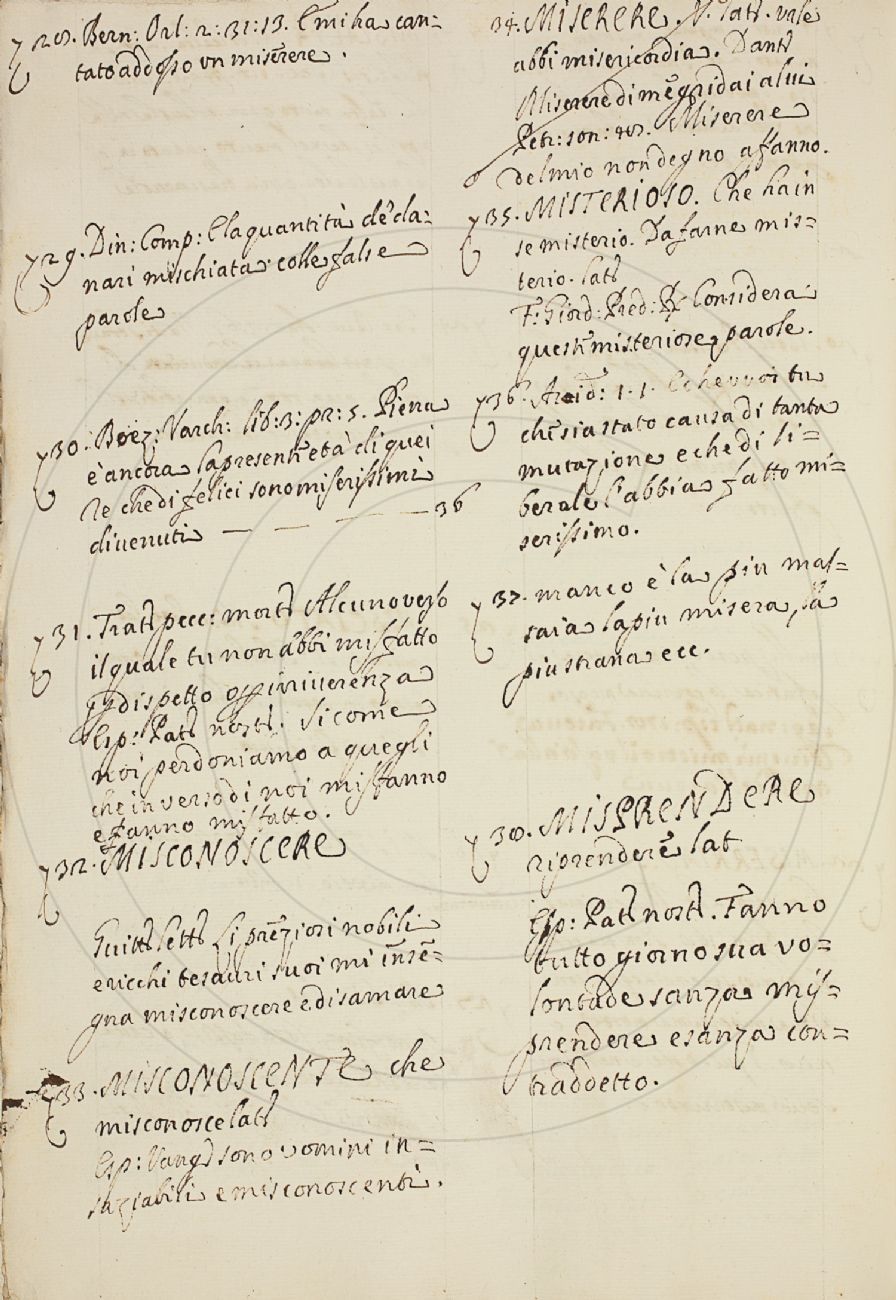 28. Bern: Orl: 2: 31: 13. E mi ha can=
tato addosso un miserere.
29. Din: Comp: E la quantità de' da=
nari mischiata colle false
parole
30. Boez: Varch: lib: 3: pr: 5. Piena
è ancora la presente età di quei
Re che di felici sono miserissimi
divenuti — — — 36
31. Tratt pecc: mortt Alcuno verso
il quale tu non abbi misfatto
dispetto irriverenza
Esp: Patt nostt. Sicome
noi perdoniamo a quegli
che inverso di noi misfanno
e fanno misfatto.
32. MISCONOSCERE
Guitt lett Li preziosi nobili
e ricchi tesauri suoi mi inse=
gna misconoscere e disamare
33. MISCONOSCENTE che
misconosce latt
Esp: Vang sono uomini in=
saziabili e misconoscenti.
34. MISERERE. V. latt. vale
abbi misericordia. Dantt
Miserere di me gridai a lui
Petr: son: 48. Miserere
del mio non degno affanno.
35. MISTERIOSO. Che ha in
se misterio. Da farne mis=
terio. latt
F. Giord: Pred: R Considera
queste misteriose parole.
36. 1. 1. E che voi tu
che sia stato causa di tanta
mutazione e che di li=
berale l'abbia fatto mi=
serissimo.
37. manco è la piu mas=
saia la piu misera, la
piu strana ecc.
38. MISPRENDERE
riprendere lat
Esp: Patt nostt. Fanno
tutto giorno sua vo=
lontade sanza mis=
prendere e sanza con=
traddetto.